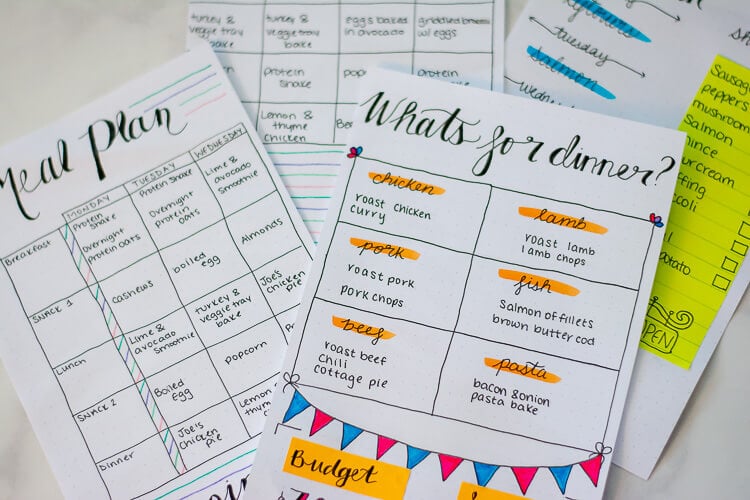 turkey &
veggie tray
bake
turkey &
veggie tray
bake
eggs baked
in avocado
griddled
w/ eggs
protein
shake
protein
shake
Lemon &
thyme
Chicken
tuesday
Salmon
Sausage
peppers
mushroom
Salmon
mince
OPEN
Meal Plan
MONDAY
TUESDAY
WEDNESDAY
Breakfast
Protein
Shake
Overnight
Protein oats
Protein Shake
Overnight
Protein oats
Lime &
avocado
Smoothie
SNACK 1
cashews
boiled
egg
Almonds
Lunch
Lime &
avocado
Smoothie
turkey &
veggie tray
bake
Joe's
Chicken
pie
SNACK 2
Boiled
Egg
popcorn
Dinner
Joe's
Chicken pie
Whats for dinner?
chicken
roast chicken
curry
lamb
roast lamb
lamb chops
pork
roast pork
pork chops
fish
Salmon of fillets
brown butter cod
beef
roast beef
chili
cottage pie
pasta
bacon & onion
pasta bake
Budget